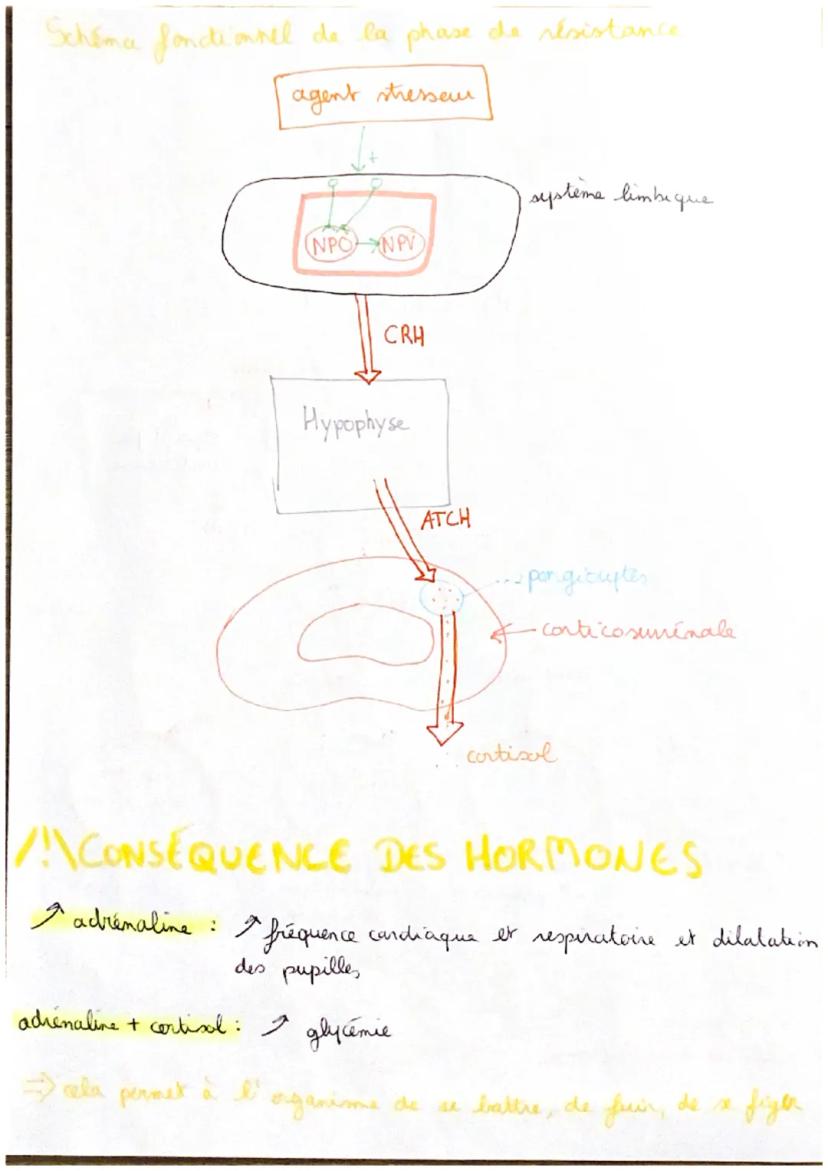 Schéma fonctionnel de la phase de résistance
agent stresseur
+
système limbique
NPO
NPV
CRH
Hypophyse
ATCH
corticosurrénale
cortisol
/!\ CONSÉQUENCE DES HORMONES
↗ adrénaline : ↗ fréquence cardiaque et respiratoire et dilatation
des pupilles
adrénaline + cortisol : ↗ glycémie
⇒ cela permet à l'organisme de se battre, de fuir, de se figer